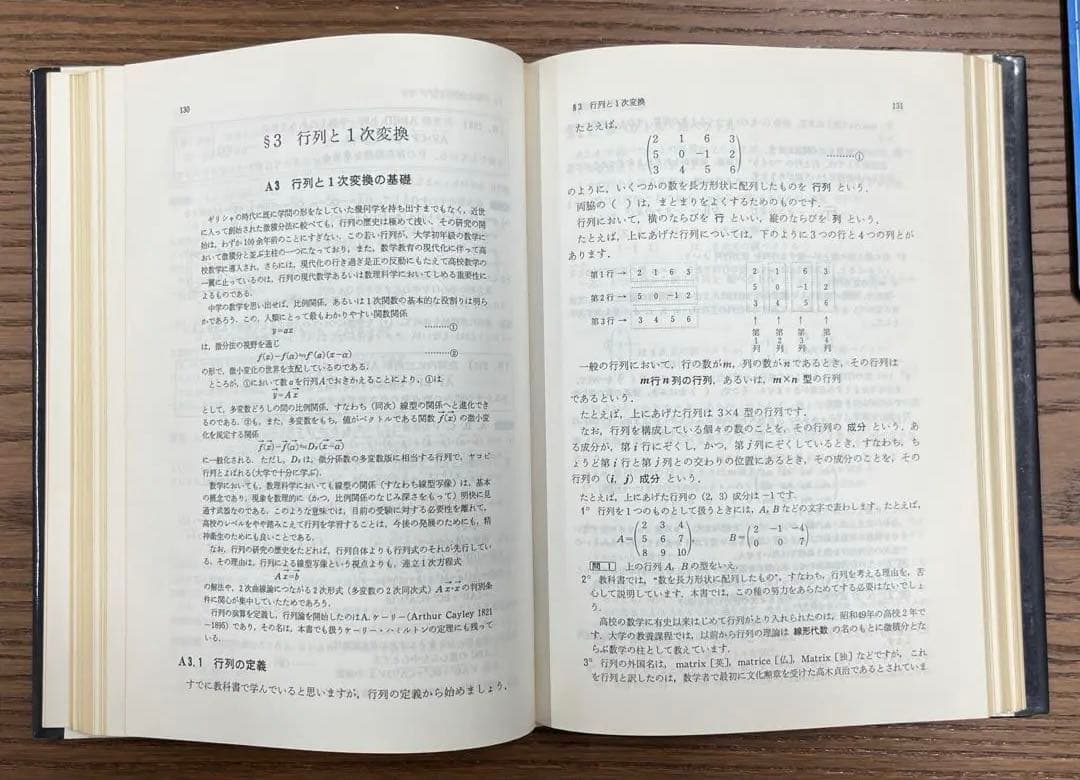 130
§3 行列と1次変換
A3 行列と1次変換の基礎
ギリシャの時代に既に学問の形をなしていた幾何学を持ち出すまでもなく，近世
に入って創始された微積分法に較べても，行列の歴史は極めて浅い．その研究の開
始は，わずか100余年前のことにすぎない．この若い行列が，大学初年級の数学に
おいて微積分と並ぶ主柱の一つになっており，また，数学教育の現代化に伴って高
校数学に導入され，さらには，現代化の行き過ぎ是正の反動にもたえて高校数学の
一翼に止っているのは，行列の現代数学あるいは数理科学においてしめる重要性に
よるものである．
中学の数学を思い出せば，比例関係，あるいは1次関数の基本的な役割りは明ら
かであろう．この，人類にとって最もわかりやすい関数関係
y=ax ………①
は，微分法の視野を通じ
f(x)−f(a)≒f′(a)(x−a) ………②
の形で，微小変化の世界を支配しているのである．
ところが，①において数aを行列Aでおきかえることにより，①は
y⃗=Ax⃗
として，多変数どうしの間の比例関係，すなわち（同次）線型の関係へと進化でき
るのである．②も，また，多変数をもち，値がベクトルである関数 f⃗(x⃗) の微小変
化を規定する関係
f⃗(x⃗)−f⃗(a⃗)≒Df(x⃗−a⃗)
に一般化される．ただし，Dfは，微分係数の多変数版に相当する行列で，ヤコビ
行列とよばれる(大学で十分に学ぶ)．
数学においても，数理科学においても線型の関係（すなわち線型写像）は，基本
の概念であり，現象を数理的に（かつ，比例関係のなじみ深さをもって）明快に見
通す武器なのである．このような意味では，目前の受験に対する必要性を離れて，
高校のレベルをやや踏みこえて行列を学習することは，今後の発展のためにも，精
神衛生のためにも良いことである．
なお，行列の研究の歴史をたどれば，行列自体よりも行列式のそれが先行してい
る．その理由は，行列による線型写像という視点よりも，連立1次方程式
Ax⃗=b⃗
の解法や，2次曲線論につながる2次形式（多変数の2次同次式）Ax⃗・x⃗ の判別条
件に関心が集中していたためであろう．
行列の演算を定義し，行列論を開始したのはA.ケーリー(Arthur Cayley 1821
−1895）であり，その名は，本書でも扱うケーリー・ハミルトンの定理にも残って
いる．
A3.1 行列の定義
すでに教科書で学んでいると思いますが，行列の定義から始めましょう．
§3 行列と1次変換 131
たとえば，
2 1 6 3
5 0 −1 2 ………①
3 4 5 6
のように，いくつかの数を長方形状に配列したものを 行列 という．
両脇の（ ）は，まとまりをよくするためのものです．
行列において，横のならびを 行 といい，縦のならびを 列 という．
たとえば，上にあげた行列については，下のように3つの行と4つの列とが
あります．
第1行→ 2 1 6 3
第2行→ 5 0 −1 2
第3行→ 3 4 5 6
2 1 6 3
5 0 −1 2
3 4 5 6
↑ ↑ ↑ ↑
第1列 第2列 第3列 第4列
一般の行列において，行の数がm，列の数がnであるとき，その行列は
m行n列の行列，あるいは，m×n 型の行列
であるという．
たとえば，上にあげた行列は 3×4 型の行列です．
なお，行列を構成している個々の数のことを，その行列の 成分 という．あ
る成分が，第i行にぞくし，かつ，第j列にぞくしているとき，すなわち，ち
ょうど第i行と第j列との交わりの位置にあるとき，その成分のことを，その
行列の (i, j) 成分 という．
たとえば，上にあげた行列の (2, 3) 成分は −1 です．
1° 行列を1つのものとして扱うときには，A, B などの文字で表わします．たとえば，
A=(2 3 4 B=(2 −1 −4
5 6 7 0 0 7)
8 9 10),
問1 上の行列 A, B の型をいえ．
2° 教科書では，“数を長方形状に配列したもの”，すなわち，行列を考える理由を，苦
心して説明しています．本書では，この種の努力をあらためてする必要はないでしょ
う．
高校の数学に有史以来はじめて行列がとり入れられたのは，昭和49年の高校2年で
す．大学の教養課程では，以前から行列の理論は 線形代数 の名のもとに微積分とな
らぶ数学の柱として教えています．
3° 行列の外国名は，matrix［英］，matrice［仏］，Matrix［独］などですが，これ
を行列と訳したのは，数学者で最初に文化勲章を受けた高木貞治であるとされていま